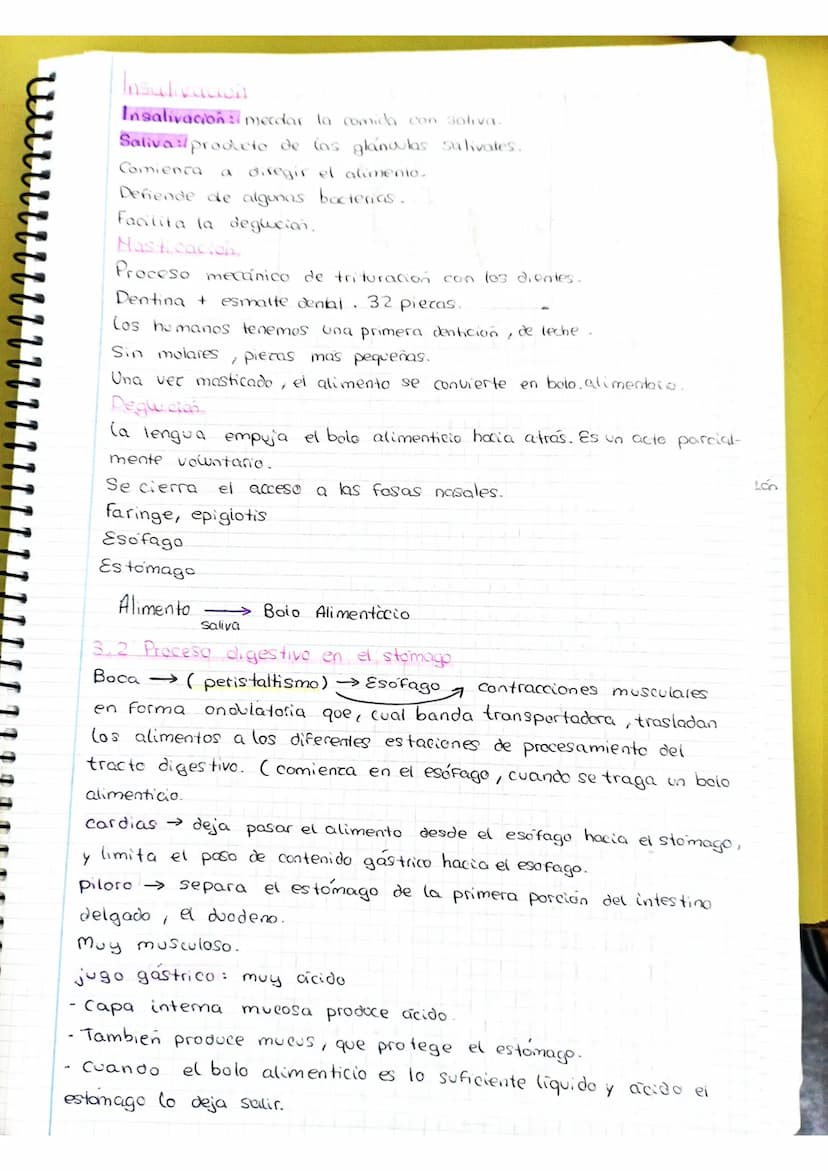 Insalivación
Insalivación: mezclar la comida con saliva.
Saliva: producto de las glándulas salivales.
Comienza a digegir el alimento.
Defiende de algunas bacterias.
Facilita la deglución.
Masticación.
Proceso mecánico de trituración con los dientes.
Dentina + esmalte dental. 32 piezas.
Los humanos tenemos una primera dentición, de leche.
Sin molares, piezas más pequeñas.
Una vez masticado, el alimento se convierte en bolo.alimenticio.
Deglución.
La lengua empuja el bolo alimenticio hacia atrás. Es un acto parcial-
mente voluntario.
Se cierra el acceso a las fosas nasales.
faringe, epiglotis
Esófago
Estómago
Alimento → Bolo Alimenticio
saliva
3.2 Proceso digestivo en el stómago
Boca → (peristaltismo) → Esófago → contracciones musculares
en forma ondulatoria que, cual banda transportadora, trasladan
los alimentos a los diferentes estaciones de procesamiento del
tracto digestivo. (comienza en el esófago, cuando se traga un bolo
alimenticio.
cardias → deja pasar el alimento desde el esófago hacia el stómago,
y limita el paso de contenido gástrico hacia el esofago.
piloro → separa el estómago de la primera porción del intestino
delgado, el duodeno.
Muy musculoso.
jugo gástrico: muy ácido
- Capa interna mucosa produce ácido.
- También produce mucus, que protege el estómago.
- Cuando el bolo alimenticio es lo suficiente líquido y ácido el
estómago lo deja salir.